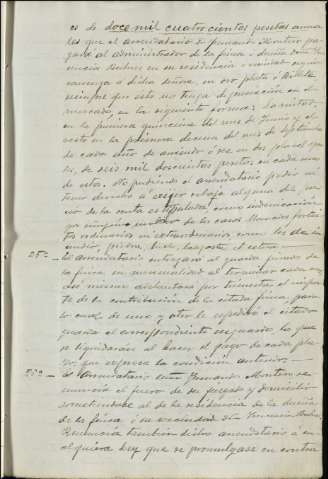 es de doce mil cuatrocientas pesetas anua-
les que el arrendatario D. Fernando Montero pa-
gará al administrador de la finca ó Doña
en su residencia ó vecindad
á dicha señora, en oro, plata ó billete
siempre que esto no tenga depreciación en el
mercado, en la siguiente forma: la mitad
en la primera quincena del mes de Junio y el
resto en la primera decena del mes de Septiembre
de cada año de arriendo ó sea en dos plazos igua-
les, de seis mil doscientas pesetas en cada uno
de ellos. No pudiendo el arrendatario pedir ni
tener derecho á exigir rebaja alguna del pre-
cio de la renta estipulada, como indemnización
por ninguno de los casos llamados fortui-
tos ordinarios ni extraordinarios, como los de in-
cendio, piedra, langosta et cetera
El arrendatario entregará al guarda jurado de
la finca su mensualidad al terminar cada una
de adelantara por trimestres el impor-
te de la contribución de la citada finca, para
lo cual de uno y otro le expedirá el citado
guarda el correspondiente resguardo, lo que
se liquidarán al hacer el pago de cada pla-
zo que expresa la condición anterior
El arrendatario Don Fernando Montero re-
nuncia el fuero de su juzgado y domicilio
sometiéndose al de la residencia de la dueña
de la finca, ó su vecindad
Renuncia también dicho arrendatario á cu-
alquiera ley que se promulgase en contra